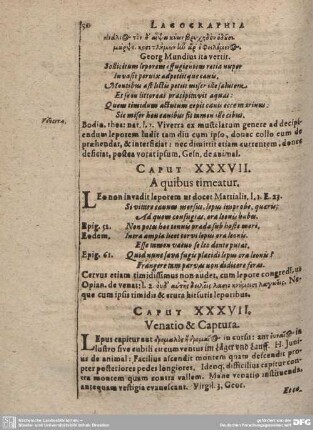 50 LAGOGRAPHIA
Georg Mundius ita vertit.
Sollicitum leporem effugientem retia nuper
Invasit pernix adpetiitque canis,
Montibus ast lictis petiit miser ille salutem
Et se in littoreas præcipitavit aquas:
Quem timidum actutum cepit canis ecce marinus:
Sic miser heu canibus fit tamen ille cibus.
Viverra. Bodin. thea: nat. l. 3. Viverra ex mustelarum genere ad decipi-
endum leporem ludit tam diu cum ipso, donec collo eum de
prehendat, & interficiat: nec dimittit etiam currentem, donec
deficiat, postea vorat ipsum, Gesn. de animal.
CAPUT XXXVII.
A quibus timeatur.
Leo non invadit leporem ut docet Martialis, l. 1. E. 23.
Si vitare canum morsus, lepus improbe, quæris;
Ad quem confugias, ora leonis habes.
Epig. 52. Non potes hoc tenui præda sub hoste mori.
Eodem. Intra ampla licet torvi lepus ora leonis
Esse tamen vacuo se leo dente putat,
Epig. 61. Quid nunc sæva fugis placidi lepus ora leonis?
Frangere tam parvas non didicere feras.
Cervus etiam timidissimus non audet, cum lepore congredi, us
Opian. de venat: l. 2.
que cum ipsis timidis & cruta hirsutis leporibus.
CAPUT XXXVII.
Venatio & Captura.
Lepus capitur aut in cursu: aut in
lustro sive cubili circumventus im Läger und Lauff. H. Juni
us de animal: Facilius ascendit montem quam descendit pro-
pter posteriores pedes longiores, Ideoq. difficilius capitur con-
tra montem currens, quam vallem. Mane venatio instituenda,
antequam vestigia evanescant. Virgil. 3. Geor.